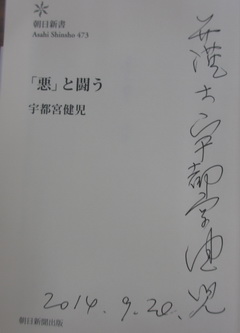 朝日新書
Asahi Shinsho 473
「悪」と闘う
宇都宮健児
弁護士 宇都宮健児
2014.9.20.
朝日新聞出版